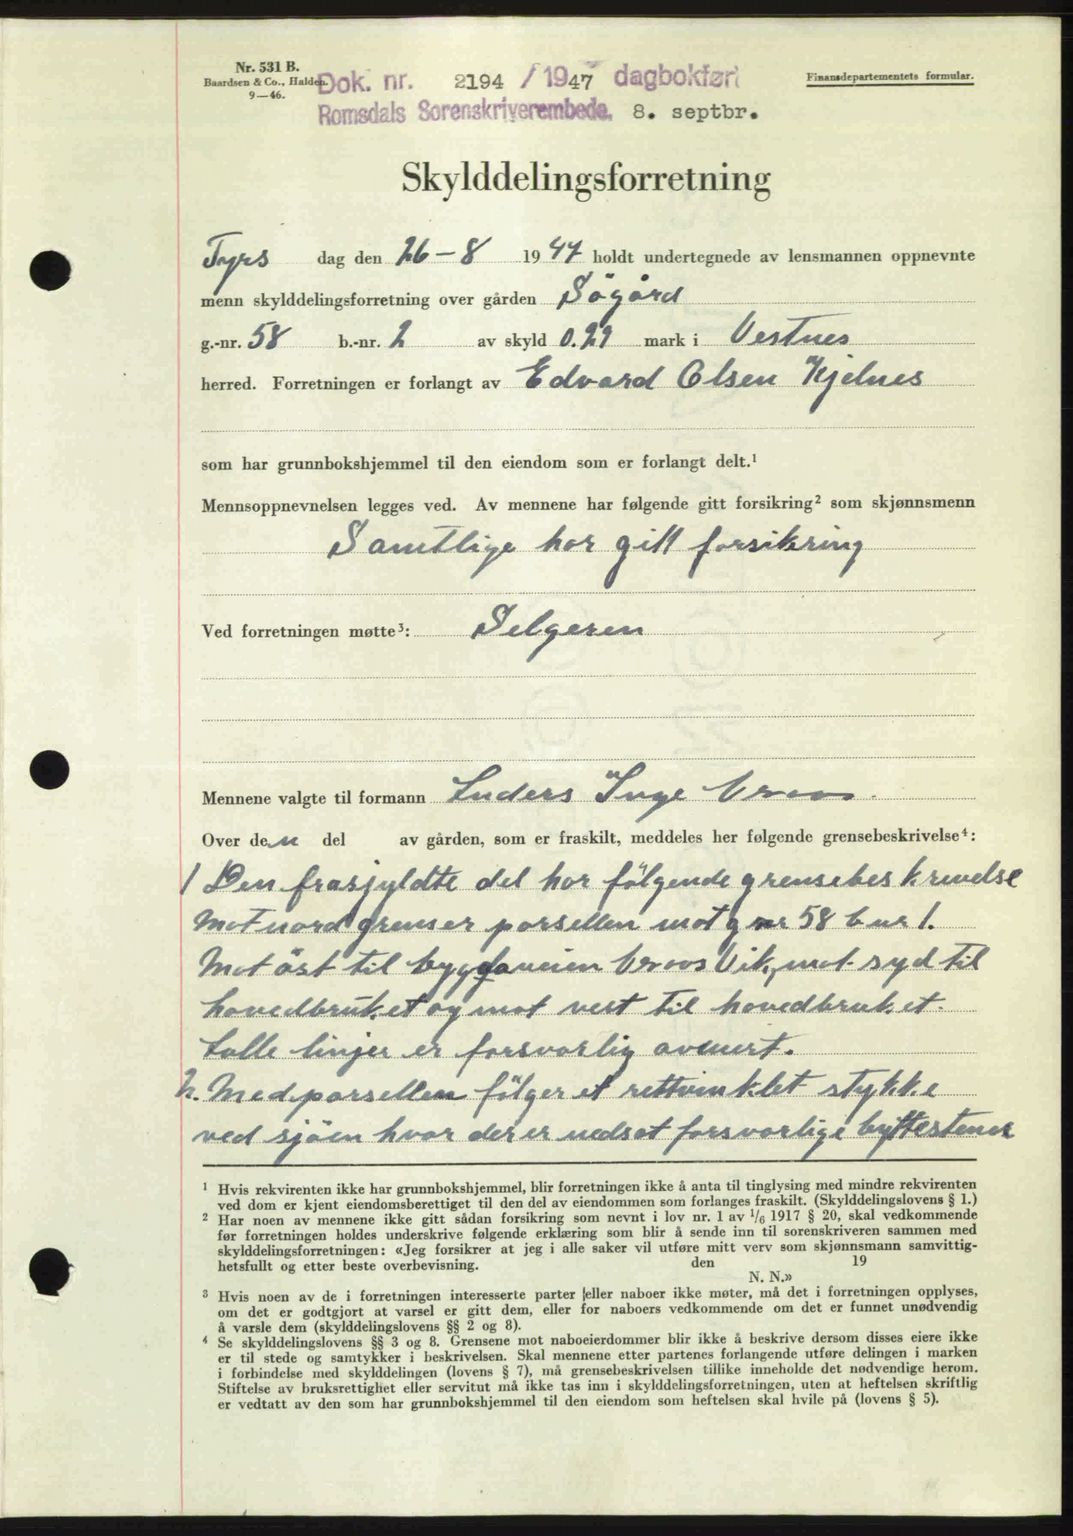 Nr. 531 B.
Baardsen & Co., Halden.
9—46.
Dok. nr. 2194 / 1947 dagbokført
Romsdals Sorenskriverembede. 8. septbr.
Finansdepartementets formular.
Skylddelingsforretning
Tyrs dag den 26-8 1947 holdt undertegnede av lensmannen oppnevnte
menn skylddelingsforretning over gården Søgård
g.-nr. 58 b.-nr. 2 av skyld 0.29 mark i Vestnes
herred. Forretningen er forlangt av Edvard Olsen Kjelnes
som har grunnbokshjemmel til den eiendom som er forlangt delt.¹
Mennsoppnevnelsen legges ved. Av mennene har følgende gitt forsikring² som skjønnsmenn
Samtlige har gitt forsikring
Ved forretningen møtte³: Selgeren
Mennene valgte til formann Anders Inge Vraas
Over den del av gården, som er fraskilt, meddeles her følgende grensebeskrivelse⁴:
1 Den frasjyldte del har følgende grensebeskrivelse
Mot nord grenser parsellen mot g nr 58 b nr 1.
Mot öst til bygdaveien Vraas Vik, mot syd til
hovedbruket og mot vest til hovedbruket.
talle linjer er forsvarlig avmert.
2. Med parsellen fölger et rettvinklet stykke
ved sjöen hvor der er nedsat forsvarlige byttestener
¹ Hvis rekvirenten ikke har grunnbokshjemmel, blir forretningen ikke å anta til tinglysing med mindre rekvirenten
ved dom er kjent eiendomsberettiget til den del av eiendommen som forlanges fraskilt. (Skylddelingslovens § 1.)
² Har noen av mennene ikke gitt sådan forsikring som nevnt i lov nr. 1 av ¹/₆ 1917 § 20, skal vedkommende
før forretningen holdes underskrive følgende erklæring som blir å sende inn til sorenskriveren sammen med
skylddelingsforretningen: «Jeg forsikrer at jeg i alle saker vil utføre mitt verv som skjønnsmann samvittig-
hetsfullt og etter beste overbevisning. den 19
N. N.»
³ Hvis noen av de i forretningen interesserte parter eller naboer ikke møter, må det i forretningen opplyses,
om det er godtgjort at varsel er gitt dem, eller for naboers vedkommende om det er funnet unødvendig
å varsle dem (skylddelingslovens §§ 2 og 8).
⁴ Se skylddelingslovens §§ 3 og 8. Grensene mot naboeierdommer blir ikke å beskrive dersom disses eiere ikke
er til stede og samtykker i beskrivelsen. Skal mennene etter partenes forlangende utføre delingen i marken
i forbindelse med skylddelingen (lovens § 7), må grensebeskrivelsen tillike inneholde det nødvendige herom.
Stiftelse av bruksrettighet eller servitut må ikke tas inn i skylddelingsforretningen, uten at heftelsen skriftlig
er vedtatt av den som har grunnbokshjemmel til den eiendom som heftelsen skal hvile på (lovens § 5).